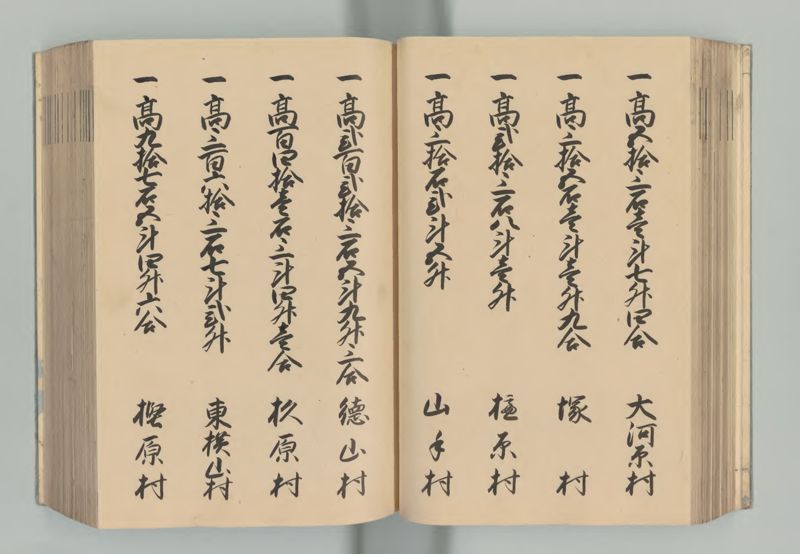 一高五拾三石壱斗七升四合 大河原村
一高三拾五石壱斗壱升九合 塚村
一高弐拾三石八斗壱升 樫原村
一高三拾石弐斗五升 山手村
一高弐百弐拾三石五斗九升三合 徳山村
一高百四拾壱石三斗四升壱合 杉原村
一高三百六拾三石七斗弐升 東横山村
一高九拾七石五斗四升六合 樫原村